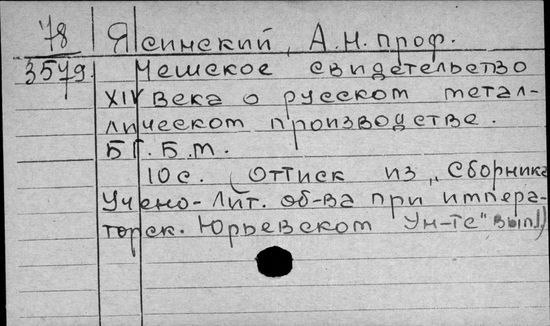 78 Ясинский, А.Н. проф.
3579. Чешское свидетельство
XIV века о русском метал-
лическом производстве.
Б.Г. Б.М.
10 с. (Оттиск из „Сборника
Учено-Лит. об-ва при импера-
торск. Юрьевском Ун-те" вып.